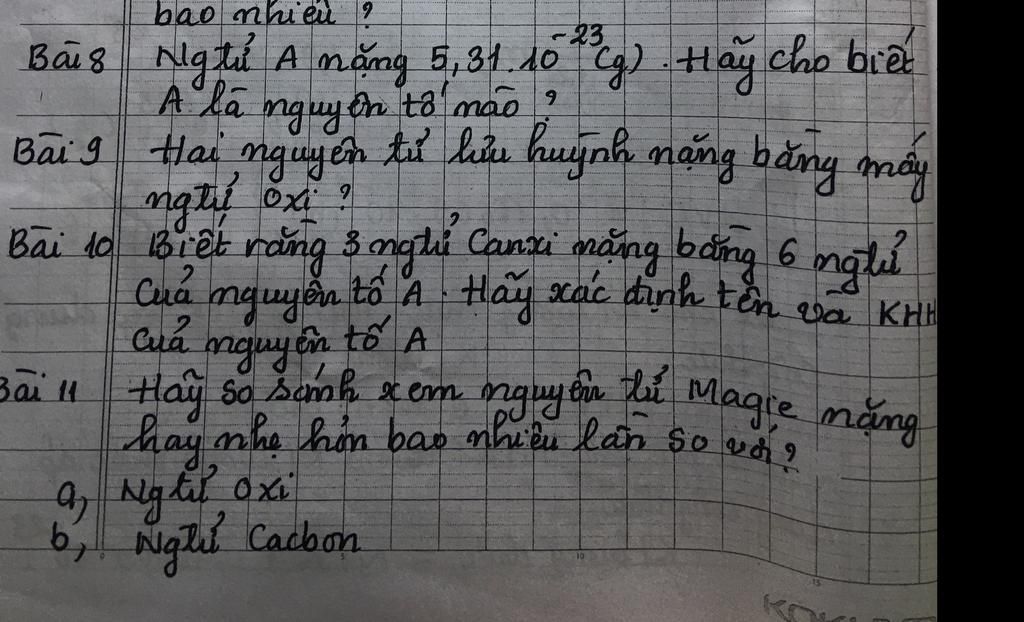 bao nhiêu ?
Bài 8 Ngtử A nặng 5,31.10⁻²³(g). Hãy cho biết
A là nguyên tố nào ?
Bài 9 Hai nguyên tử lưu huỳnh nặng bằng mấy
ngtử oxi ?
Bài 10 Biết rằng 3 ngtử Canxi nặng bằng 6 ngtử
Của nguyên tố A. Hãy xác định tên và KHH
Của nguyên tố A
Bài 11 Hãy so sánh xem nguyên tử Magie nặng
hay nhẹ hơn bao nhiêu lần so với?
a, Ngtử oxi
b, Ngtử Cacbon